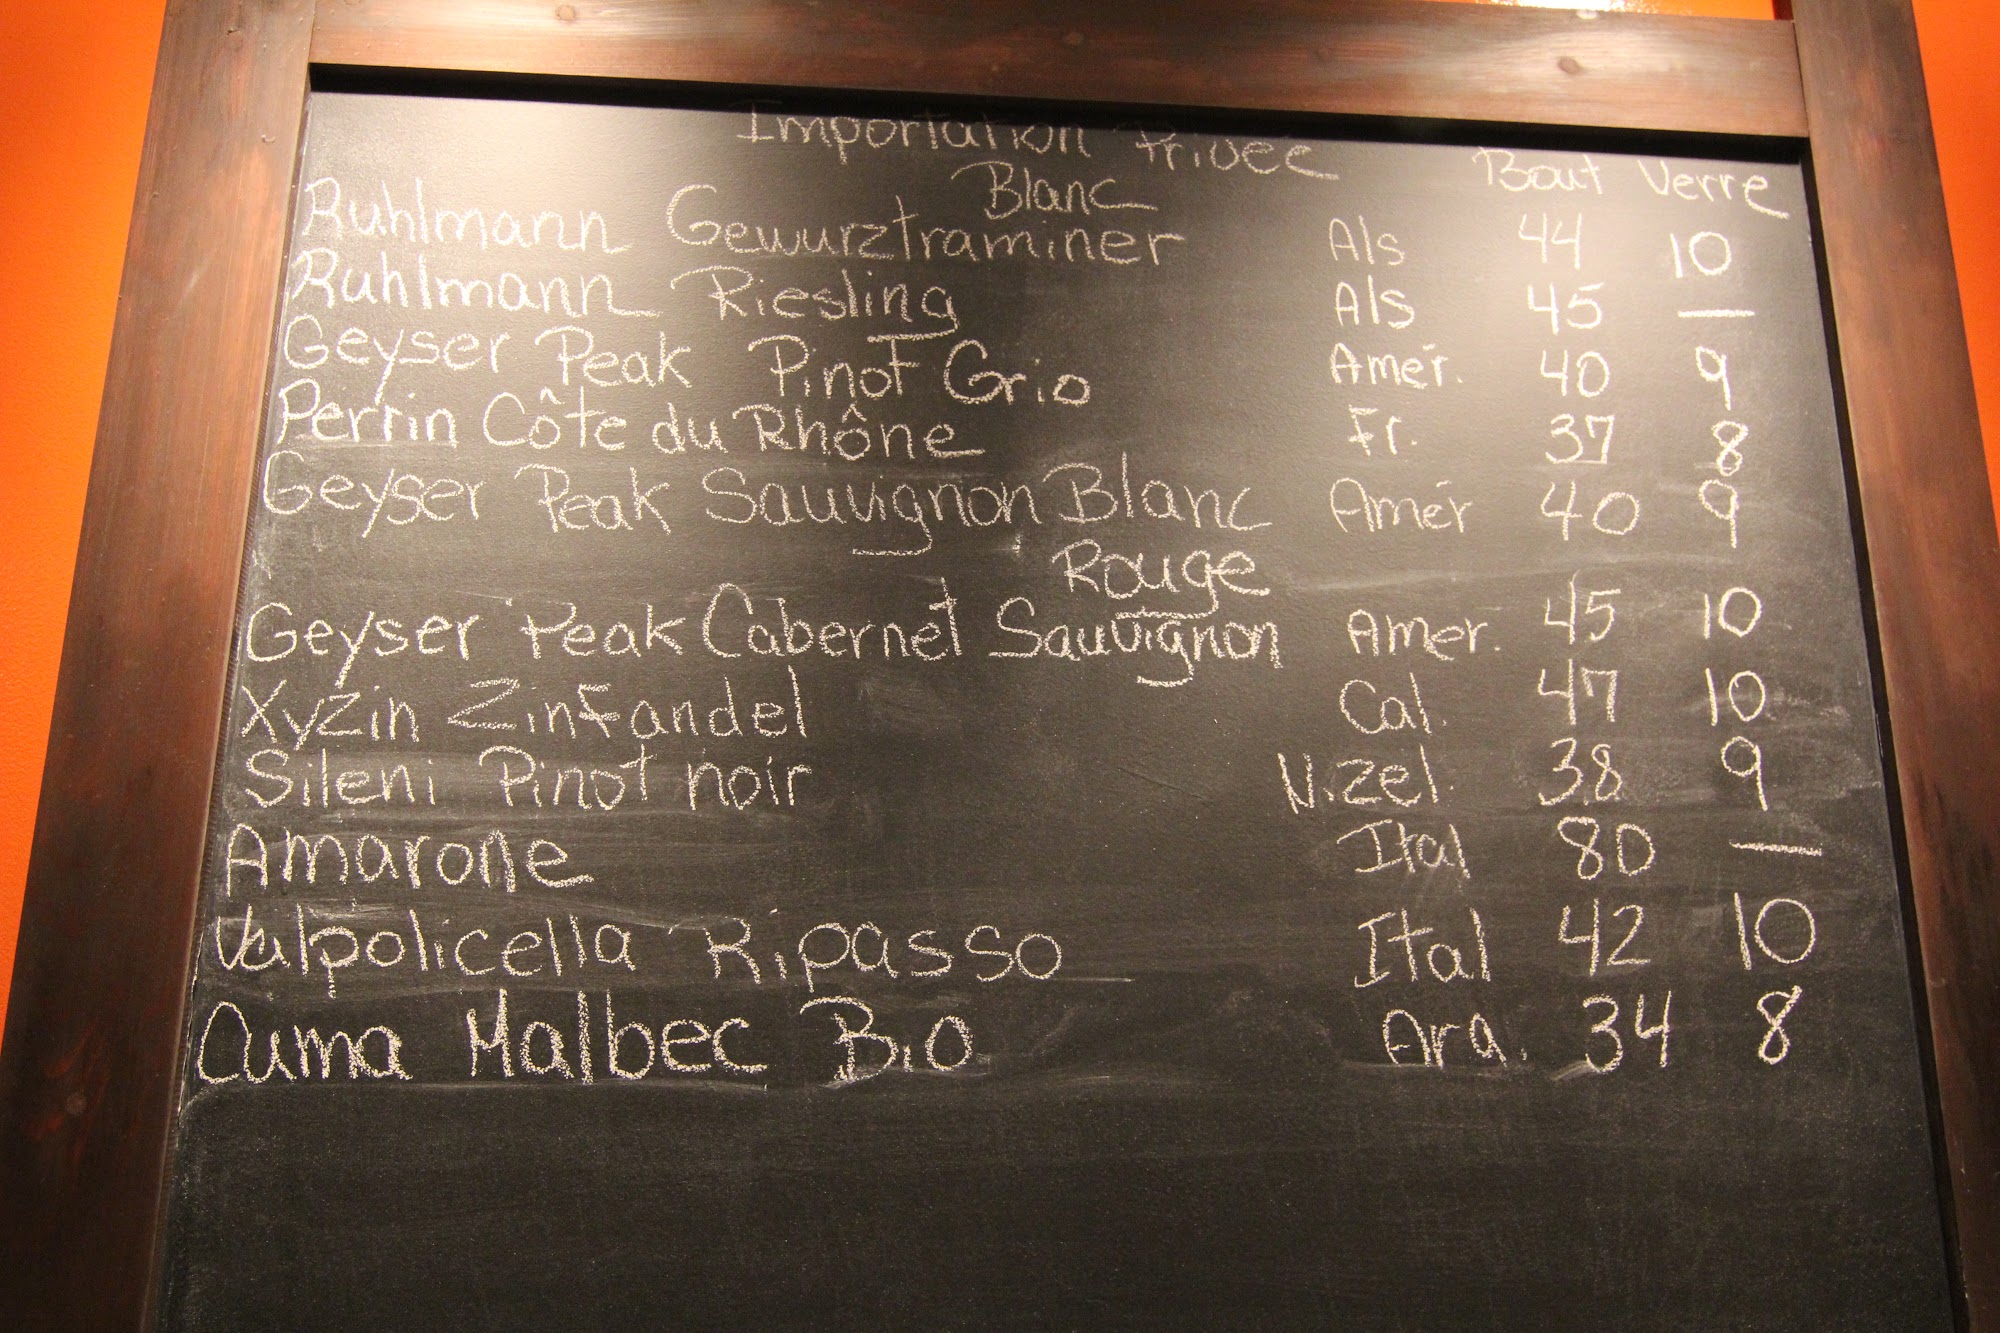 Importation Privée
Bout Verre
Blanc
Ruhlmann Gewurztraminer Als 44 10
Ruhlmann Riesling Als 45 —
Geyser Peak Pinot Grio Amér. 40 9
Perrin Côte du Rhône Fr. 37 8
Geyser Peak Sauvignon Blanc Amér 40 9
Rouge
Geyser Peak Cabernet Sauvignon Amer. 45 10
XyZin Zinfandel Cal. 47 10
Sileni Pinot noir N.zel. 38 9
Amarone Ital 80 —
Valpolicella Ripasso Ital 42 10
Cuma Malbec Bio Arg. 34 8